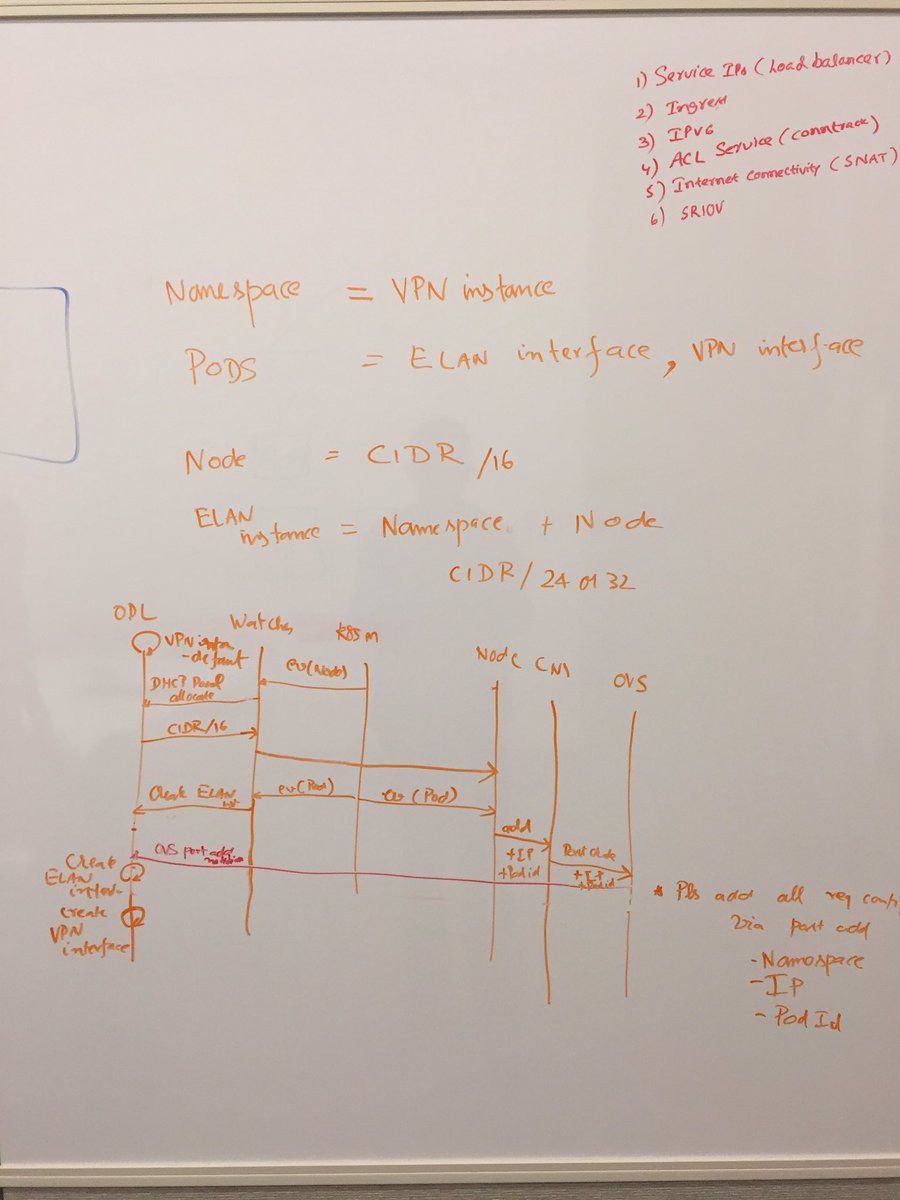 1) Service IPs (Load balancer)
2) Ingress
3) IPV6
4) ACL Service (conntrack)
5) Internet Connectivity (SNAT)
6) SRIOV
Namespace = VPN instance
PODS = ELAN interface, VPN interface
Node = CIDR /16
ELAN instance = Namespace + Node
CIDR / 24 or 32
ODL
Watcher
K8S M
Node
CNI
OVS
VPN
ev(Node)
DHCP Pool
allocate
CIDR/16
Create ELAN
ev(Pod)
ev (Pod)
add
+IP
+Pod id
+IP
+Pod id
OVS port add
Create
ELAN
create
VPN
interface
* Pls add all req
Via port add
- Namespace
- IP
- Pod Id